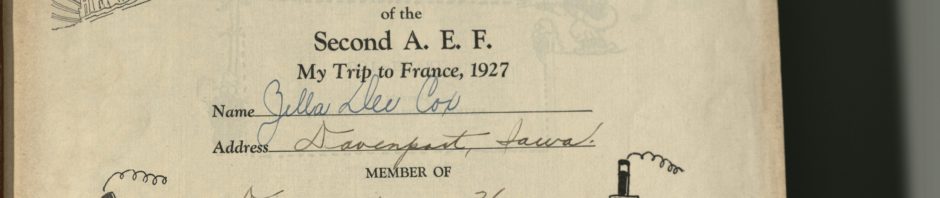 of the
Second A. E. F.
My Trip to France, 1927
Name Zella Dee Cox
Address Davenport, Iowa.
MEMBER OF